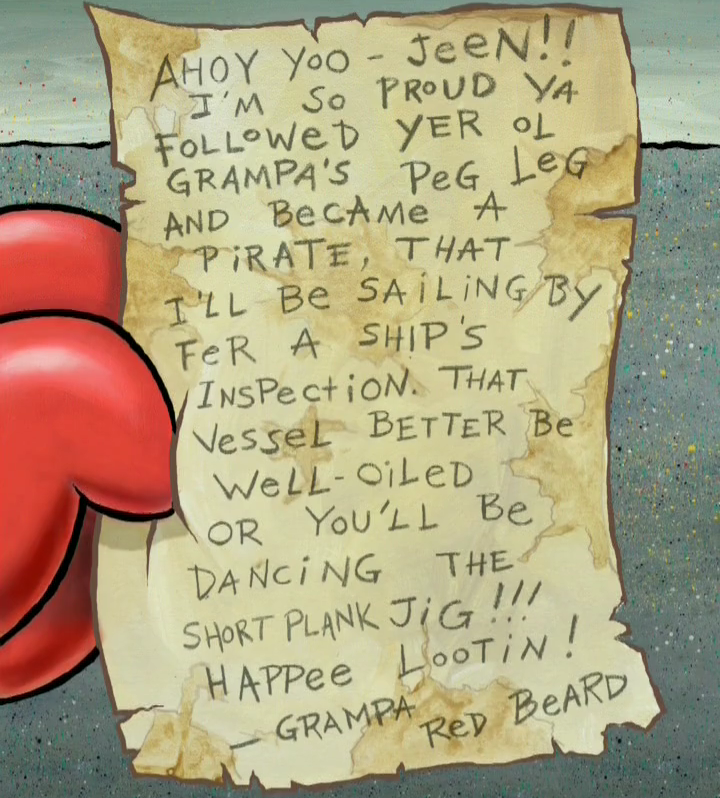 AHOY YOO - JEEN!!
I'M SO PROUD YA
FOLLOWED YER OL
GRAMPA'S PEG LEG
AND BECAME A
PIRATE, THAT
I'LL BE SAILING BY
FER A SHIP'S
INSPECTION. THAT
VESSEL BETTER BE
WELL-OILED
OR YOU'LL BE
DANCING THE
SHORT PLANK JIG!!!
HAPPEE LOOTIN!
- GRAMPA RED BEARD